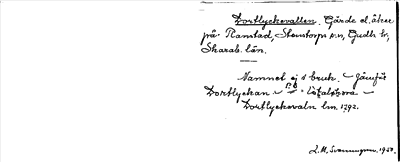 Dortlyckevallen. Gärde el. åker
på Ranstad, Stenstorps sn, Gudh. hd,
Skarab. län.
Namnet ej i bruk. – Jämför
Dortlyckan
Dortlyckevaln lm. 1792.
L. M. Svanungsen. 1950.